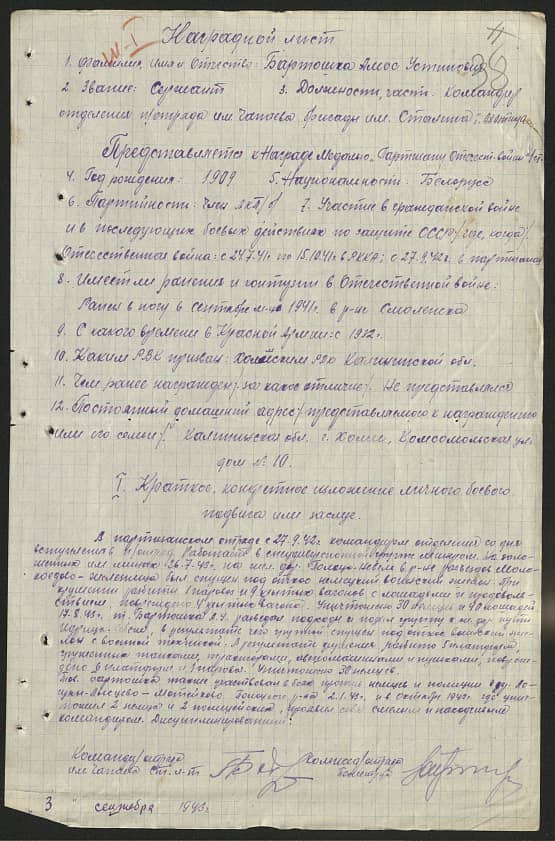 Наградной лист
1. Фамилия, Имя и Отчество: Бартошка Амос Устинович
2. Звание: Сержант 3. Должность, часть: Командир
отделения п/отряда им. Чапаева бригады им. Сталина
Представляется к Награде Медалью "Партизану Отечест. Войны"
4. Год рождения: 1909 5. Национальность: Белорусс
6. Партийность: член ВКП/б/ 7. Участие в гражданской войне
и в последующих боевых действиях по защите СССР /где, когда/
Отечественная война: с 24.7.41г по 15.10.41г в РККА; с 27.9.42г. в партизанах
8. Имеет ли ранения и контузии в Отечественной войне:
Ранен в ногу в сентябре м-це 1941г. в р-не Смоленска
9. С какого времени в Красной Армии: с 1932г.
10. Каким РВК призван: Холмским РВК Калининской обл.
11. Чем ранее награжден /за какое отличие/. Не представлялся
12. Постоянный домашний адрес /представляемого к награждению
или его семьи/: Калининская обл. г. Холм, Комсомольская ул.
дом № 10.
I. Краткое, конкретное изложение личного боевого
подвига или заслуг.
В партизанском отряде с 27.9.42г. командиром отделения со дня
вступления в п/отряд. Работая в диверсионной группе минером,
26.7.43г. на жел. дор. Полоцк-Невель в р-не разъезда
Железница был спущен под откос немецкий воинский эшелон. При
крушении разбиты 1 паровоз и 9 крытых вагонов с лошадьми и продоволь-
ствием, повреждено 4 крытых вагона. Уничтожено 30 немцев и 40 лошадей
17.8.43г. т. Бартошка А.У. разведал подходы и подвел группу к ж.д. пути
Идрица-Себеж, в результате чего группой спущен под откос воинский эше-
лон с военной техникой. В результате крушения разбито 5 платформ,
груженных танками, тракторами, автомашинами и пушками, повреж-
дено 6 платформ и 1 паровоз. Уничтожено 30 немцев.
Тов. Бартошка также участвовал в боях против немцев и полиции в д.
2.1.43г. и в октябре 1942г. где унич-
тожил 2 немца и 2 полицейских. Проявил себя смелым и находчивым
командиром. Дисциплинированный.
Командир/отряда
им. Чапаева ст. л-т
Комиссар/отряда
3 сентября 1943г.